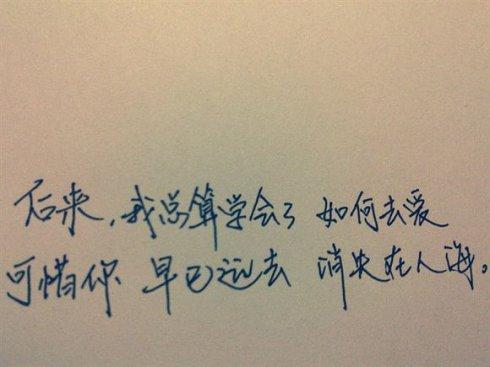 后来，我总算学会了 如何去爱
可惜你 早已远去 消失在人海。